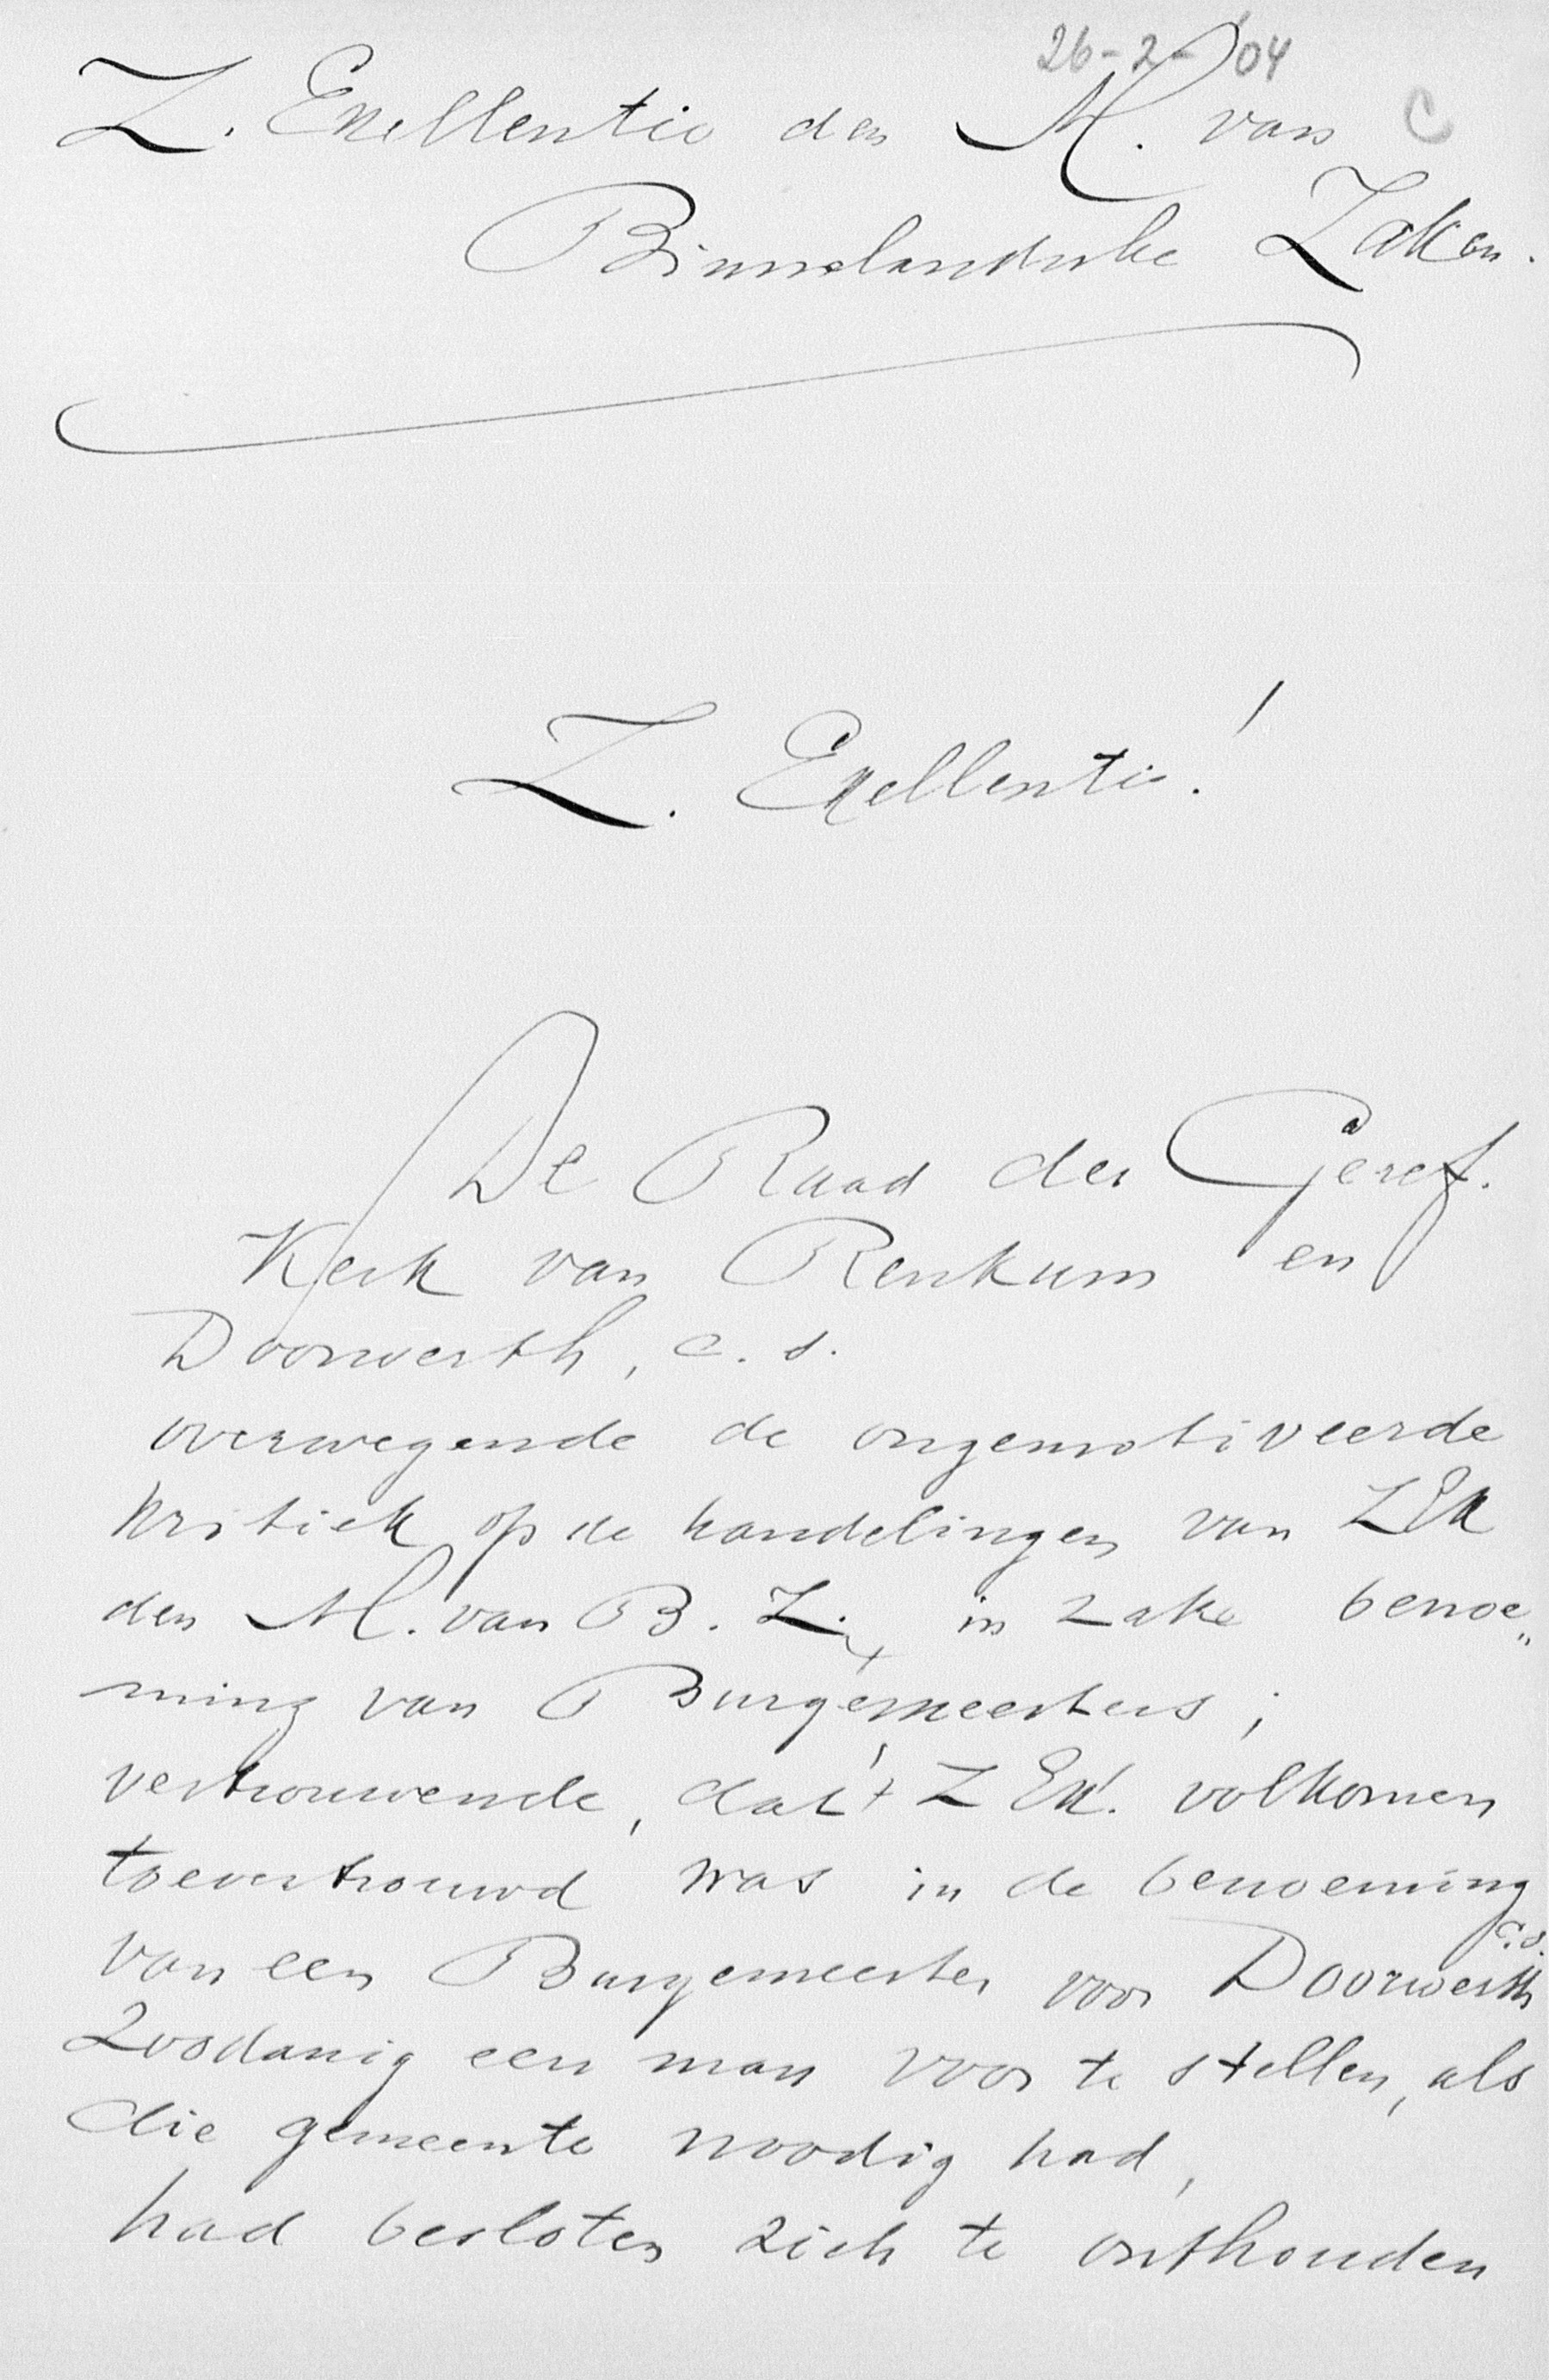 26-2-'04
Z. Exellentie den M. van C
Binnelandsche Zaken.
Z. Exellentie!
De Raad der Geref.
Kerk van Renkum en
Doorwerth, c.s.
overwegende de ongemotiveerde
kritiek op de handelingen van ZEx
den M. van B. Z. in zake benoe„
ming van Burgemeesters;
vertrouwende, dat 't Z Ex. volkomen
toevertrouwd was in de benoeming
van een Burgemeester voor Doorwerth c.s.
zoodanig een man voor te stellen, als
die gemeente noodig had,
had besloten zich te onthouden